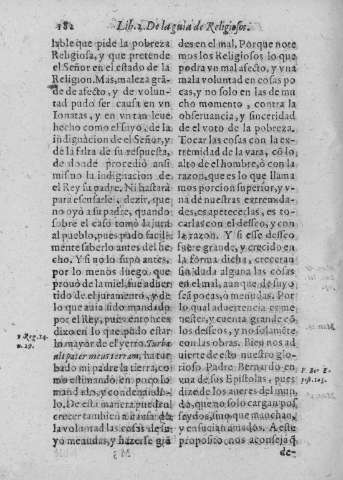 182 Lib. 2. De la guia de Religiosos.
lable que pide la pobreza
Religiosa, y que pretende
el Señor en el estado de la
Religion. Mas, maleza grã-
de de afecto, y de volun-
tad pudo ser causa en vn
Ionatas, y en vn tan leue
hecho como el suyo, de la
indignacion del Señor, y
de la falta de su respuesta,
de donde procedió assi
mismo la indignacion de
el Rey su padre. Ni bastarà
para escusarse, dezir, que
no oyò a su padre, quando
sobre el caso tomò la jura
al pueblo, pues pudo facil-
mente saberlo antes del he-
cho. Y si no lo supo antes,
por lo menos luego que
prouò de la miel, fue aduer
tido del juramento, y de
lo que auia sido mandado
por el Rey, pues entonces
dixo en lo que pudo estar
lo mayor de el yerro. Turba
uit pater meus terram, ha tur
bado mi padre la tierra, co
mo estimando en poco lo
mandado, y condenando-
lo. De esta manera puedẽ
crecer tambien a causa de
la voluntad las cosas de su-
yo menudas, y hazerse grã
1 Reg. 14.
n. 29.
des en el mal. Porque note
mos los Religiosos lo que
podrà vn mal afecto, y vna
mala voluntad en cosas po
cas, y no solo en las de mu
cho momento, contra la
obseruancia, y sinceridad
de el voto de la pobreza.
Tocar las cosas con la es-
tremidad de la vara, cõ lo
alto de el hombre, ò con la
razon, que es lo que llama
mos porcion superior, y v-
na de nuestras extremida-
des, es apetecerlas, es to-
carlas con el desseo, y con
la razon. Y si esse desseo
fuere grande, y crecido en
la forma dicha, creceràn
sin duda alguna las cosas
en el mal, aunque de suyo
seã pocas, ò menudas. Por
lo qual aduertencia es me-
nester, y cuenta grande cõ
los desseos, y no solamẽte
con las obras. Bien nos ad
uierte de esto nuestro glo-
rioso Padre Bernardo en
vna de sus Epistolas, pues
dize de los aueres del mun
do, que no solo cargan pos
seydos, sino que manchan,
y ensucian amados. A este
proposito nos aconseja q̃
de-